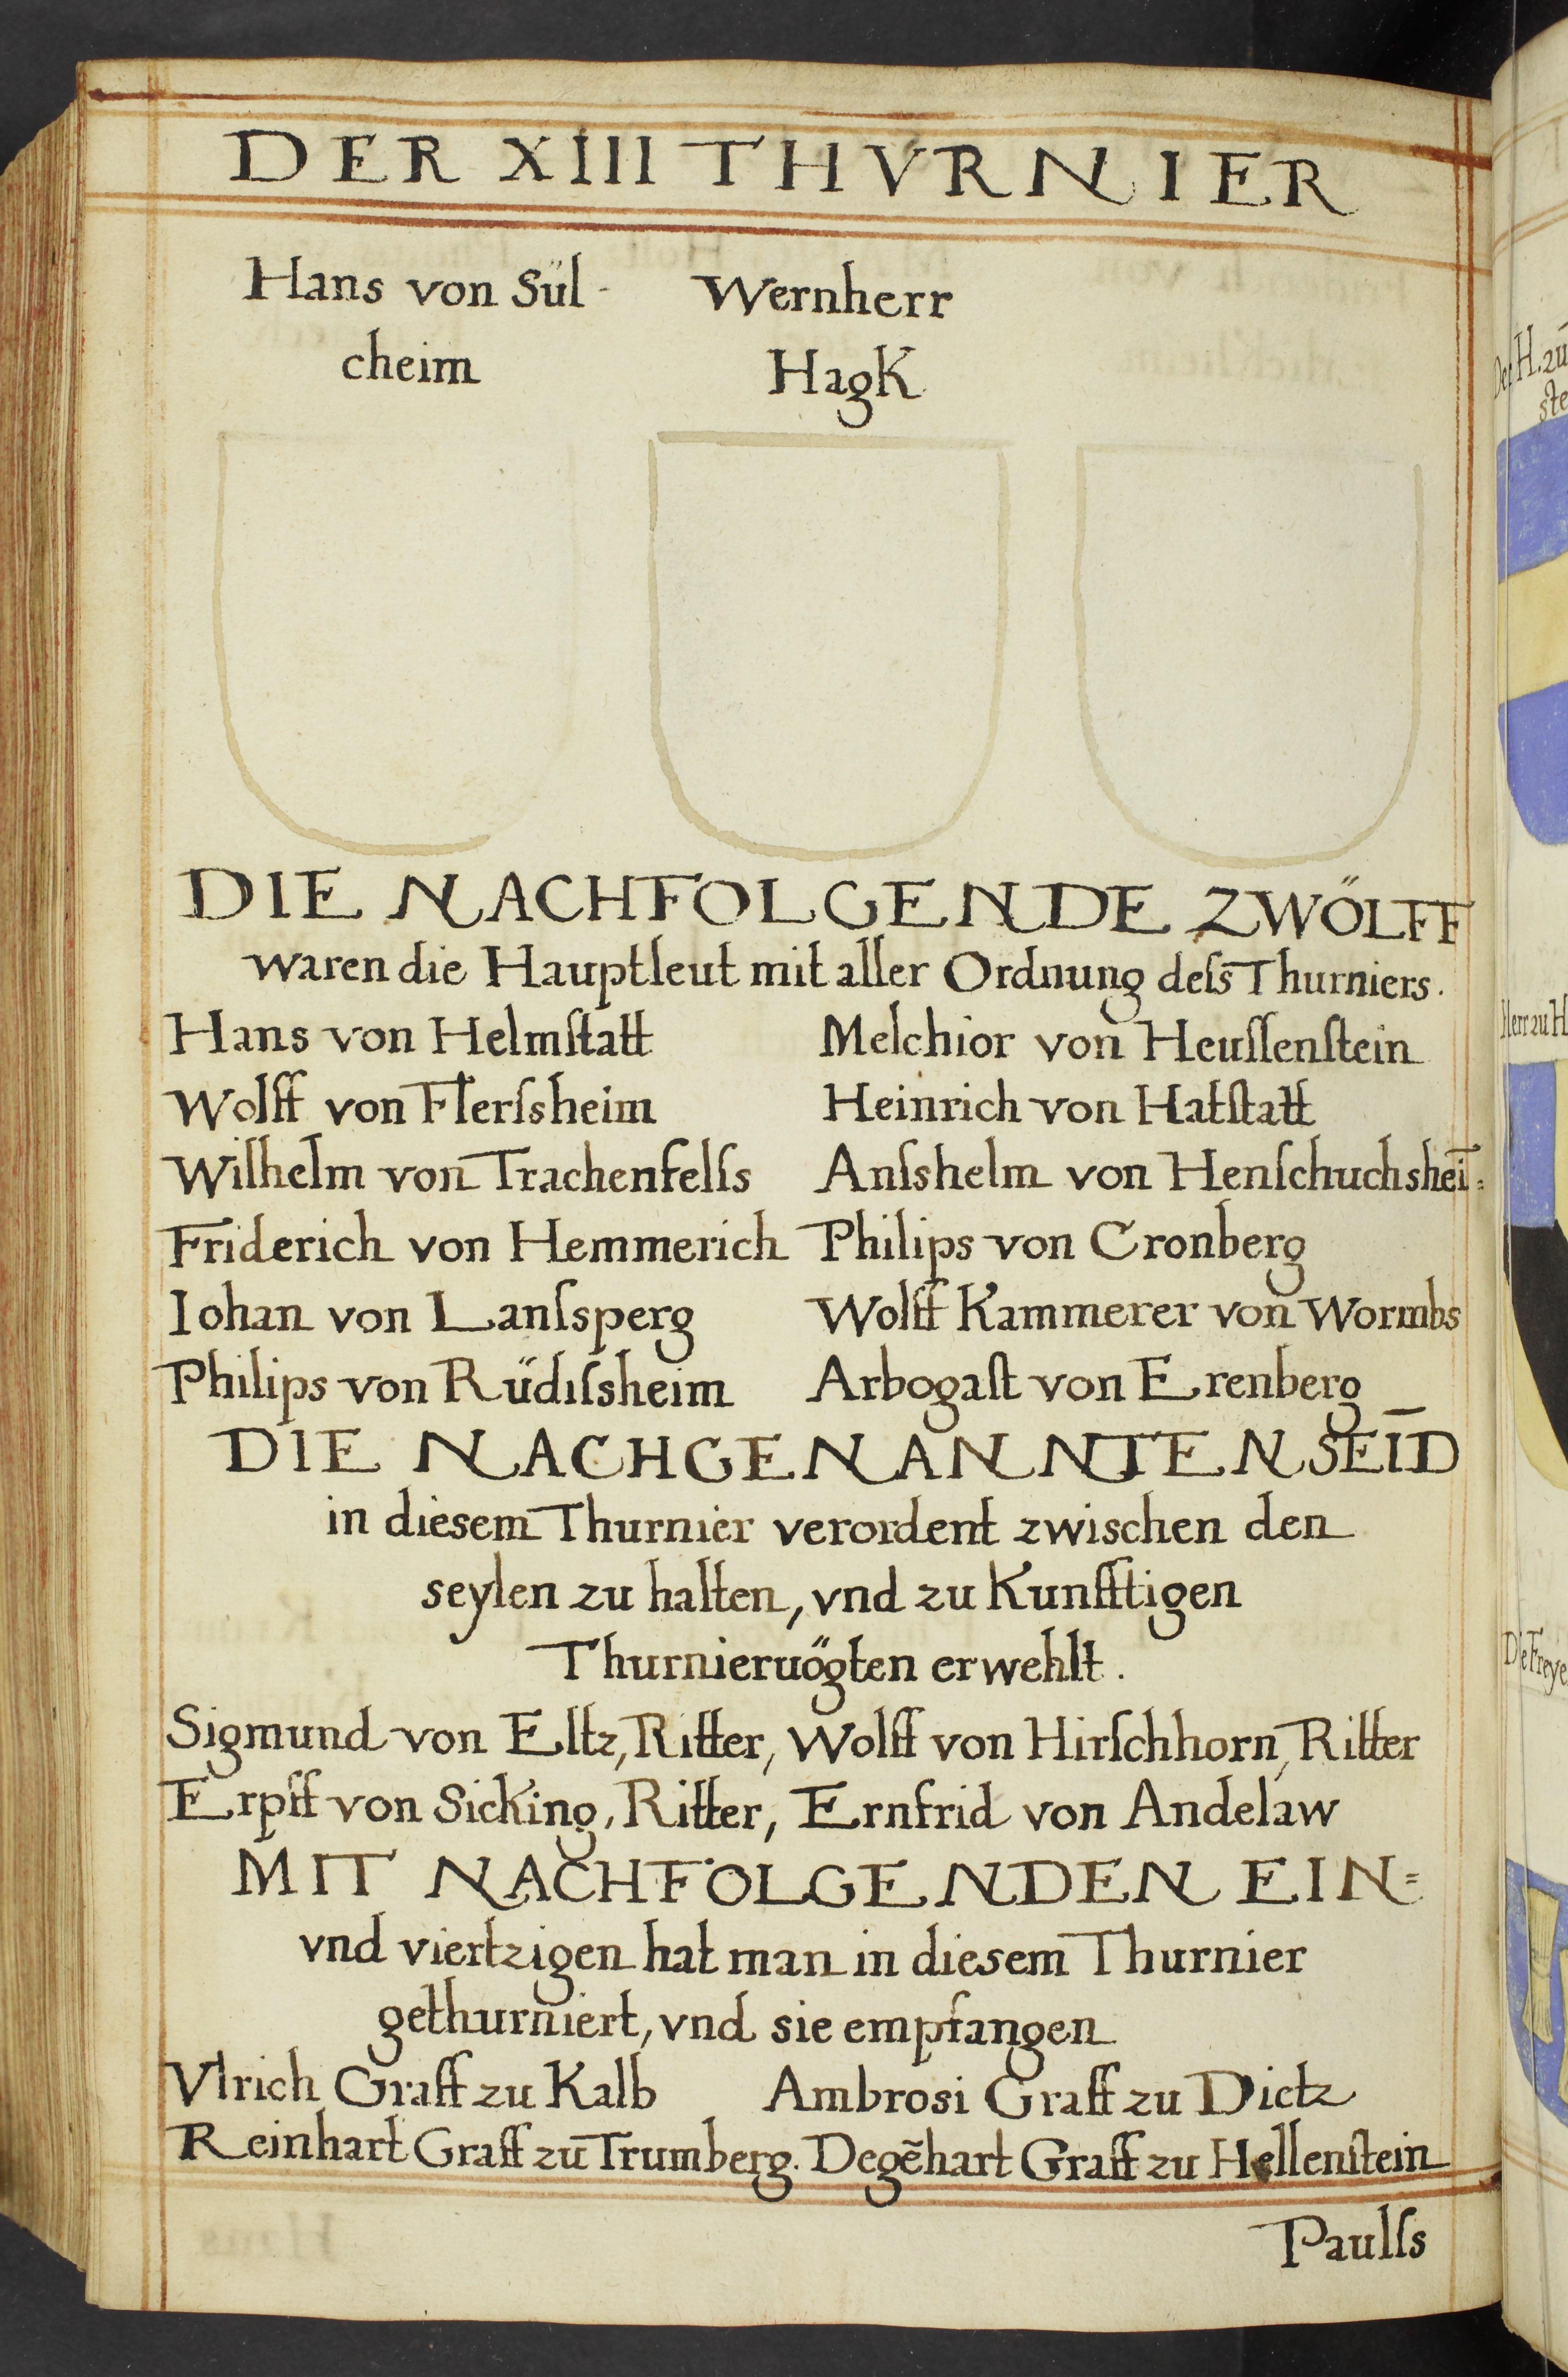 DER XIII THVRNIER
Hans von Sül-
cheim
Wernherr
HagK
DIE NACHFOLGENDE ZWÖLFF
waren die Hauptleut mit aller Ordnung deſs Thurniers.
Hans von Helmſtatt
Melchior von Heuſſenſtein
Wolff von Flerſsheim
Heinrich von Hatſtatt
Wilhelm von Trachenfelſs
Anſshelm von Henſchuchsheī=
Friderich von Hemmerich
Philips von Cronberg
Iohan von Lanſsperg
Wolff Kammerer von Wormbs
Philips von Rüdiſsheim
Arbogaſt von Erenberg
DIE NACHGENANNTEN SEĪD
in diesem Thurnier verordent zwischen den
seylen zu halten, vnd zu Kunfftigen
Thurnieruögten erwehlt.
Sigmund von Eltz, Ritter, Wolff von Hirſchhorn, Ritter
Erpff von Sicking, Ritter, Ernfrid von Andelaw
MIT NACHFOLGENDEN EIN=
vnd viertzigen hat man in diesem Thurnier
gethurniert, vnd sie empfangen
Vlrich Graff zu Kalb
Ambrosi Graff zu Dietz
Reinhart Graff zu Trumberg. Degēhart Graff zu Hellenſtein
Paulſs
H. zū
ste
Herr zu H
Die Freye